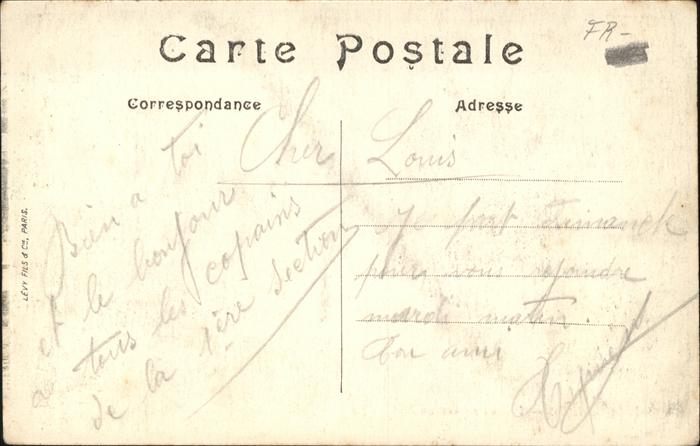 FR-
Carte Postale
Correspondance
Adresse
LÉVY FILS & Cie, PARIS.
Cher Louis
Je part Dimanche
pour vous rejoindre
mardi matin.
Ton ami
Bien a toi
et le bonjour
a tous les copains
de la 1ère Section